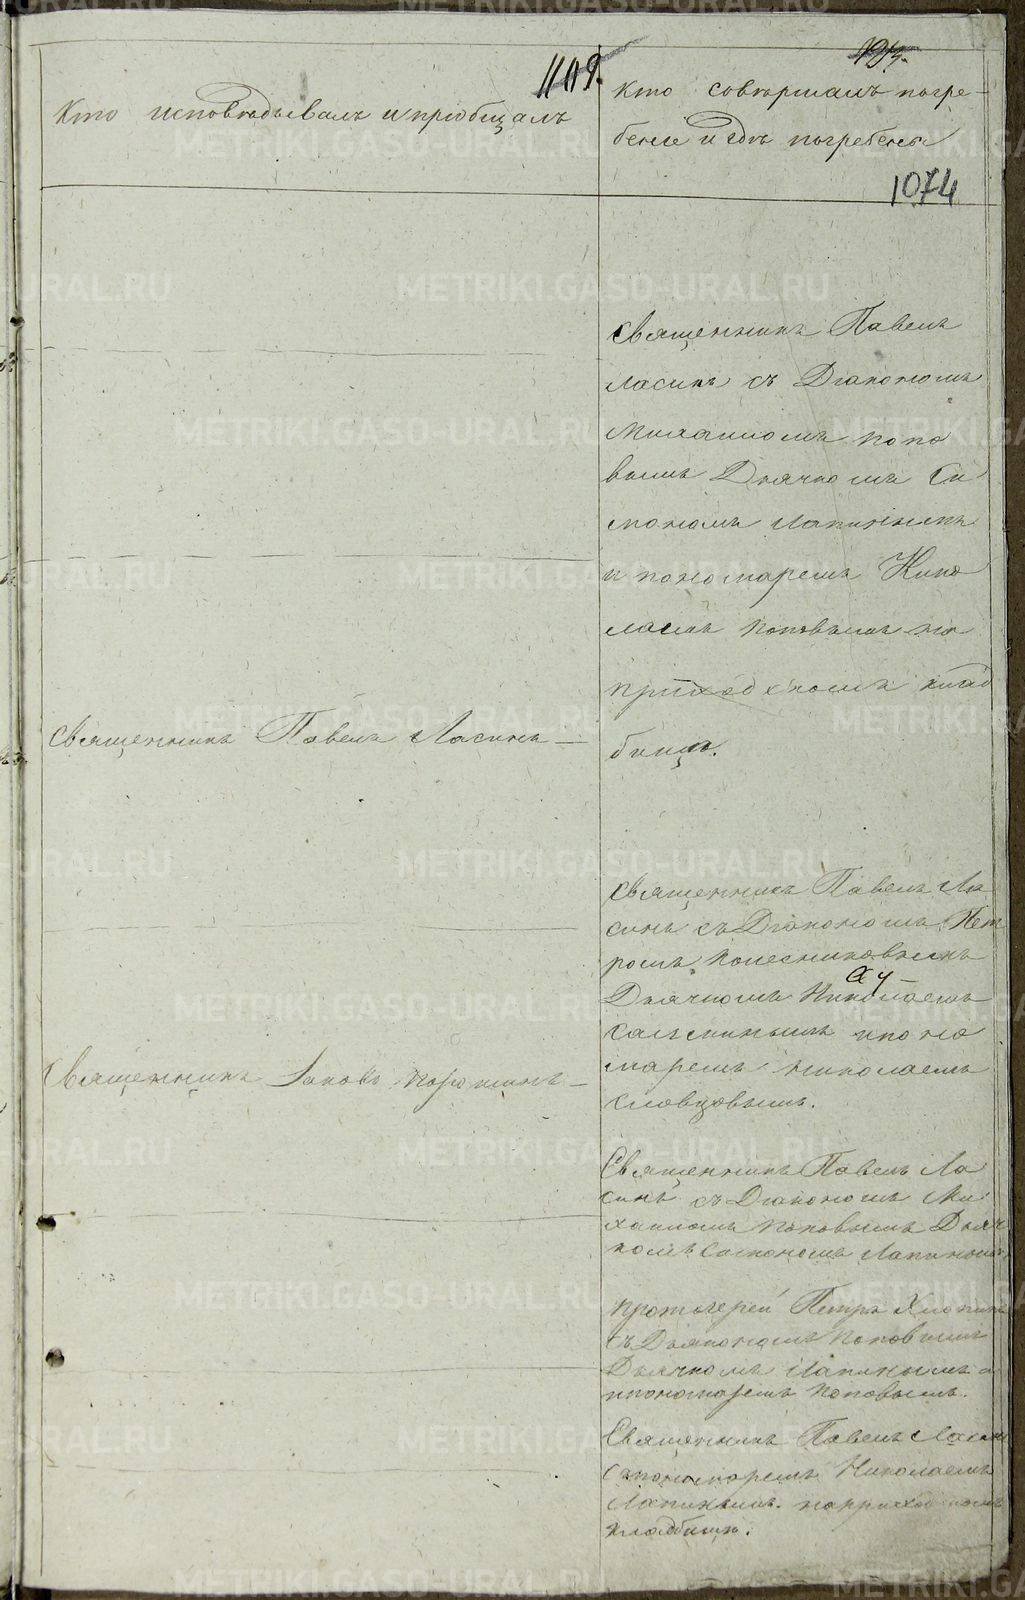 1119.
Кто исповѣдывалъ и прiобщалъ
Кто совершалъ погре-
бенiе и гдѣ погребены
1074
Священникъ Павелъ
Ласинъ съ Дiакономъ
Михаиломъ Попо
вымъ Дьячкомъ Си
мономъ Лапинымъ
и пономаремъ Нико
лаемъ Поповымъ на
приходскомъ клад
бищѣ.
Священникъ Павелъ Ласинъ —
Священникъ Павелъ Ла
синъ съ Дiакономъ Пет
ромъ Колесниковымъ
Дьячкомъ Николаемъ
и поно
маремъ Николаемъ
Словцовымъ.
Священникъ Iаковъ —
Священникъ Павелъ Ла
синъ съ Дiакономъ Ми
хаиломъ Поповымъ Дьяч
комъ Симономъ Лапинымъ
Протоiерей Петръ Хлопинъ
съ Дьякономъ Поповымъ
Дьячкомъ Лапинымъ и
пономаремъ Поповымъ.
Священникъ Павелъ Ласинъ
съ пономаремъ Николаемъ
Лапинымъ. на приходскомъ
кладбищѣ.
METRIKI.GASO-URAL.RU